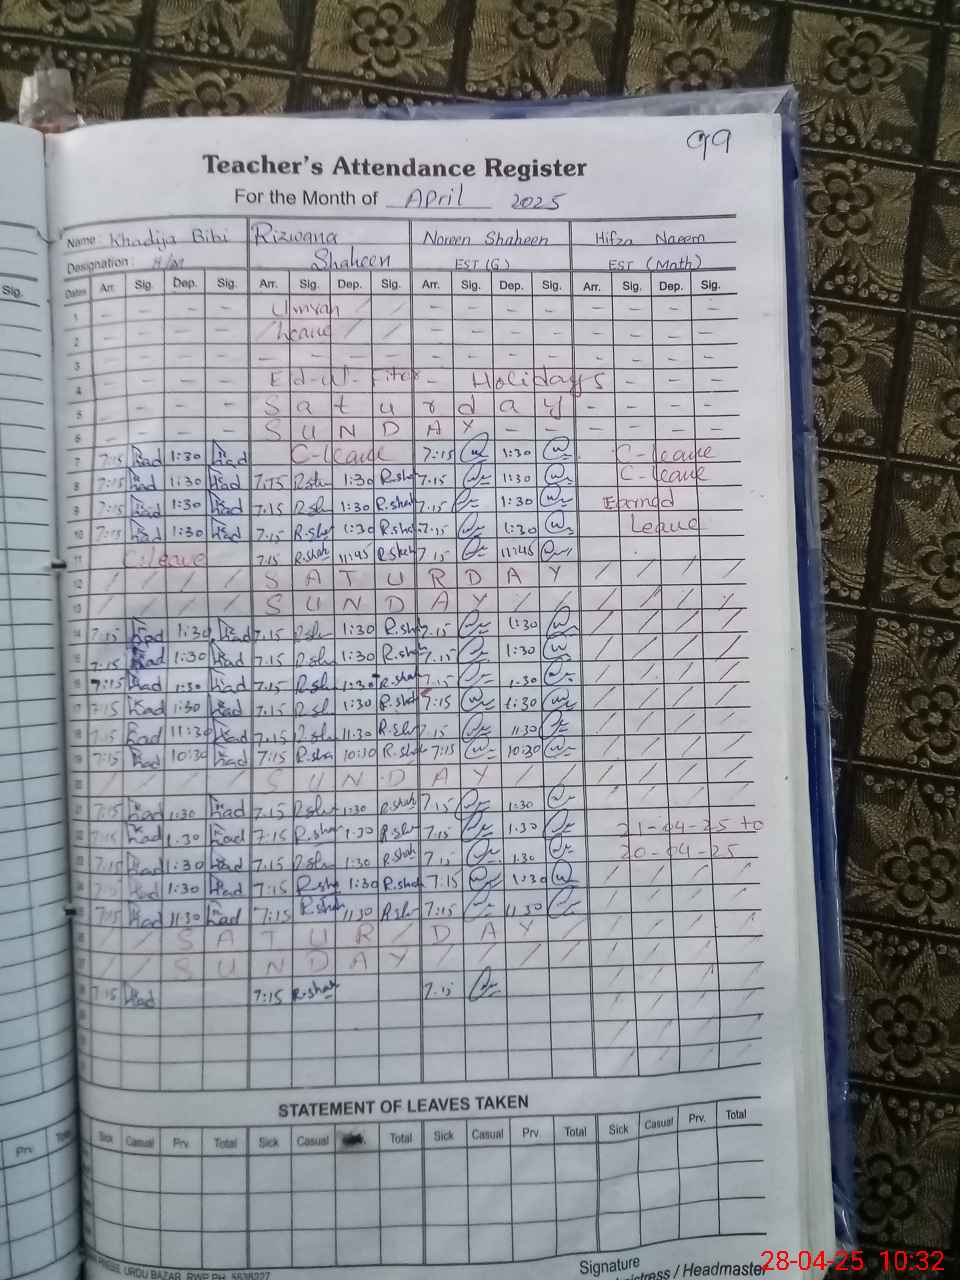 99
Teacher's Attendance Register
For the Month of April 2025
Name: Khadija Bibi Rizwana Shaheen Noreen Shaheen Hifza Naeem
Designation: H/M EST (G) EST (Math)
Sig. Dates Arr. Sig. Dep. Sig. Arr. Sig. Dep. Sig. Arr. Sig. Dep. Sig. Arr. Sig. Dep. Sig.
1 - - - - Umrah / / - - - - - - - -
2 - - - - / Leave / / - - - - - - - -
3 - - - - - - - - - - - - - - - -
4 - - - - Eid-ul-Fiter - Holidays - - -
5 - - - - Saturday - - - -
6 - - - - SUNDAY - - - - - -
7 7:15 Had 1:30 Had C-leave 7:15 1:30 C-leave
8 7:15 Had 1:30 Had 7:15 R.sha 1:30 R.sha 7.15 1:30 C-leave
9 7:15 Had 1:30 Had 7.15 R.sh 1:30 R.shah 7.15 1:30 Earned
10 7:15 Had 1:30 Had 7.15 R.sha 1:30 R.sha 7.15 1:30 Leave
11 C.leave 7.15 R.shah 11:45 R.shah 7.15 11:45
12 / / / / SATURDAY / / / /
13 / / / / SUNDAY / / / / / /
14 7.15 Had 1:30 Had 7.15 R.sha 1:30 R.sha 7.15 1:30 / / / /
15 7.15 Had 1:30 Had 7.15 R.sha 1:30 R.sha 7.15 1:30 / / / /
16 7:15 Had 1:30 Had 7.15 R.sh 1:30 R.shah 7.15 1.30 / / / /
17 7:15 Had 1:30 Had 7.15 R.sh 1:30 R.shah 7:15 1:30 / / / /
18 7.15 Had 11:30 Had 7.15 R.sha 11.30 R.sha 7.15 11:30 / / / /
19 7:15 Had 10:30 Had 7:15 R.sha 10:30 R.sha 7:15 10:30 / / / /
/ / / / SUNDAY / / / / / /
7:15 Had 1:30 Had 7.15 R.sha 1:30 R.shah 7.15 1:30 / / / /
7:15 Had 1.30 Had 7:15 R.sha 1.30 R.sha 7.15 1.30 21-04-25 to
7:15 Had 1:30 Had 7.15 R.sha 1:30 R.shah 7.15 1.30 20-04-25
7:15 Had 1:30 Had 7:15 R.sha 1:30 R.sha 7:15 1:30 / / / /
7:15 Had 11:30 Had 7:15 R.shah 11:30 R.sha 7:15 11:30 / / / /
/ / SATUR/DAY / / / / /
/ / SUNDAY / / / / / / / /
7:15 Had 7:15 R.shah 7.15 / / / /
STATEMENT OF LEAVES TAKEN
Prv. Sick Casual Prv. Total Sick Casual Total Sick Casual Prv. Total Sick Casual Prv. Total
URDU BAZAR, RWP PH: 5538227
Signature
/ Headmaster
28-04-25 10:32